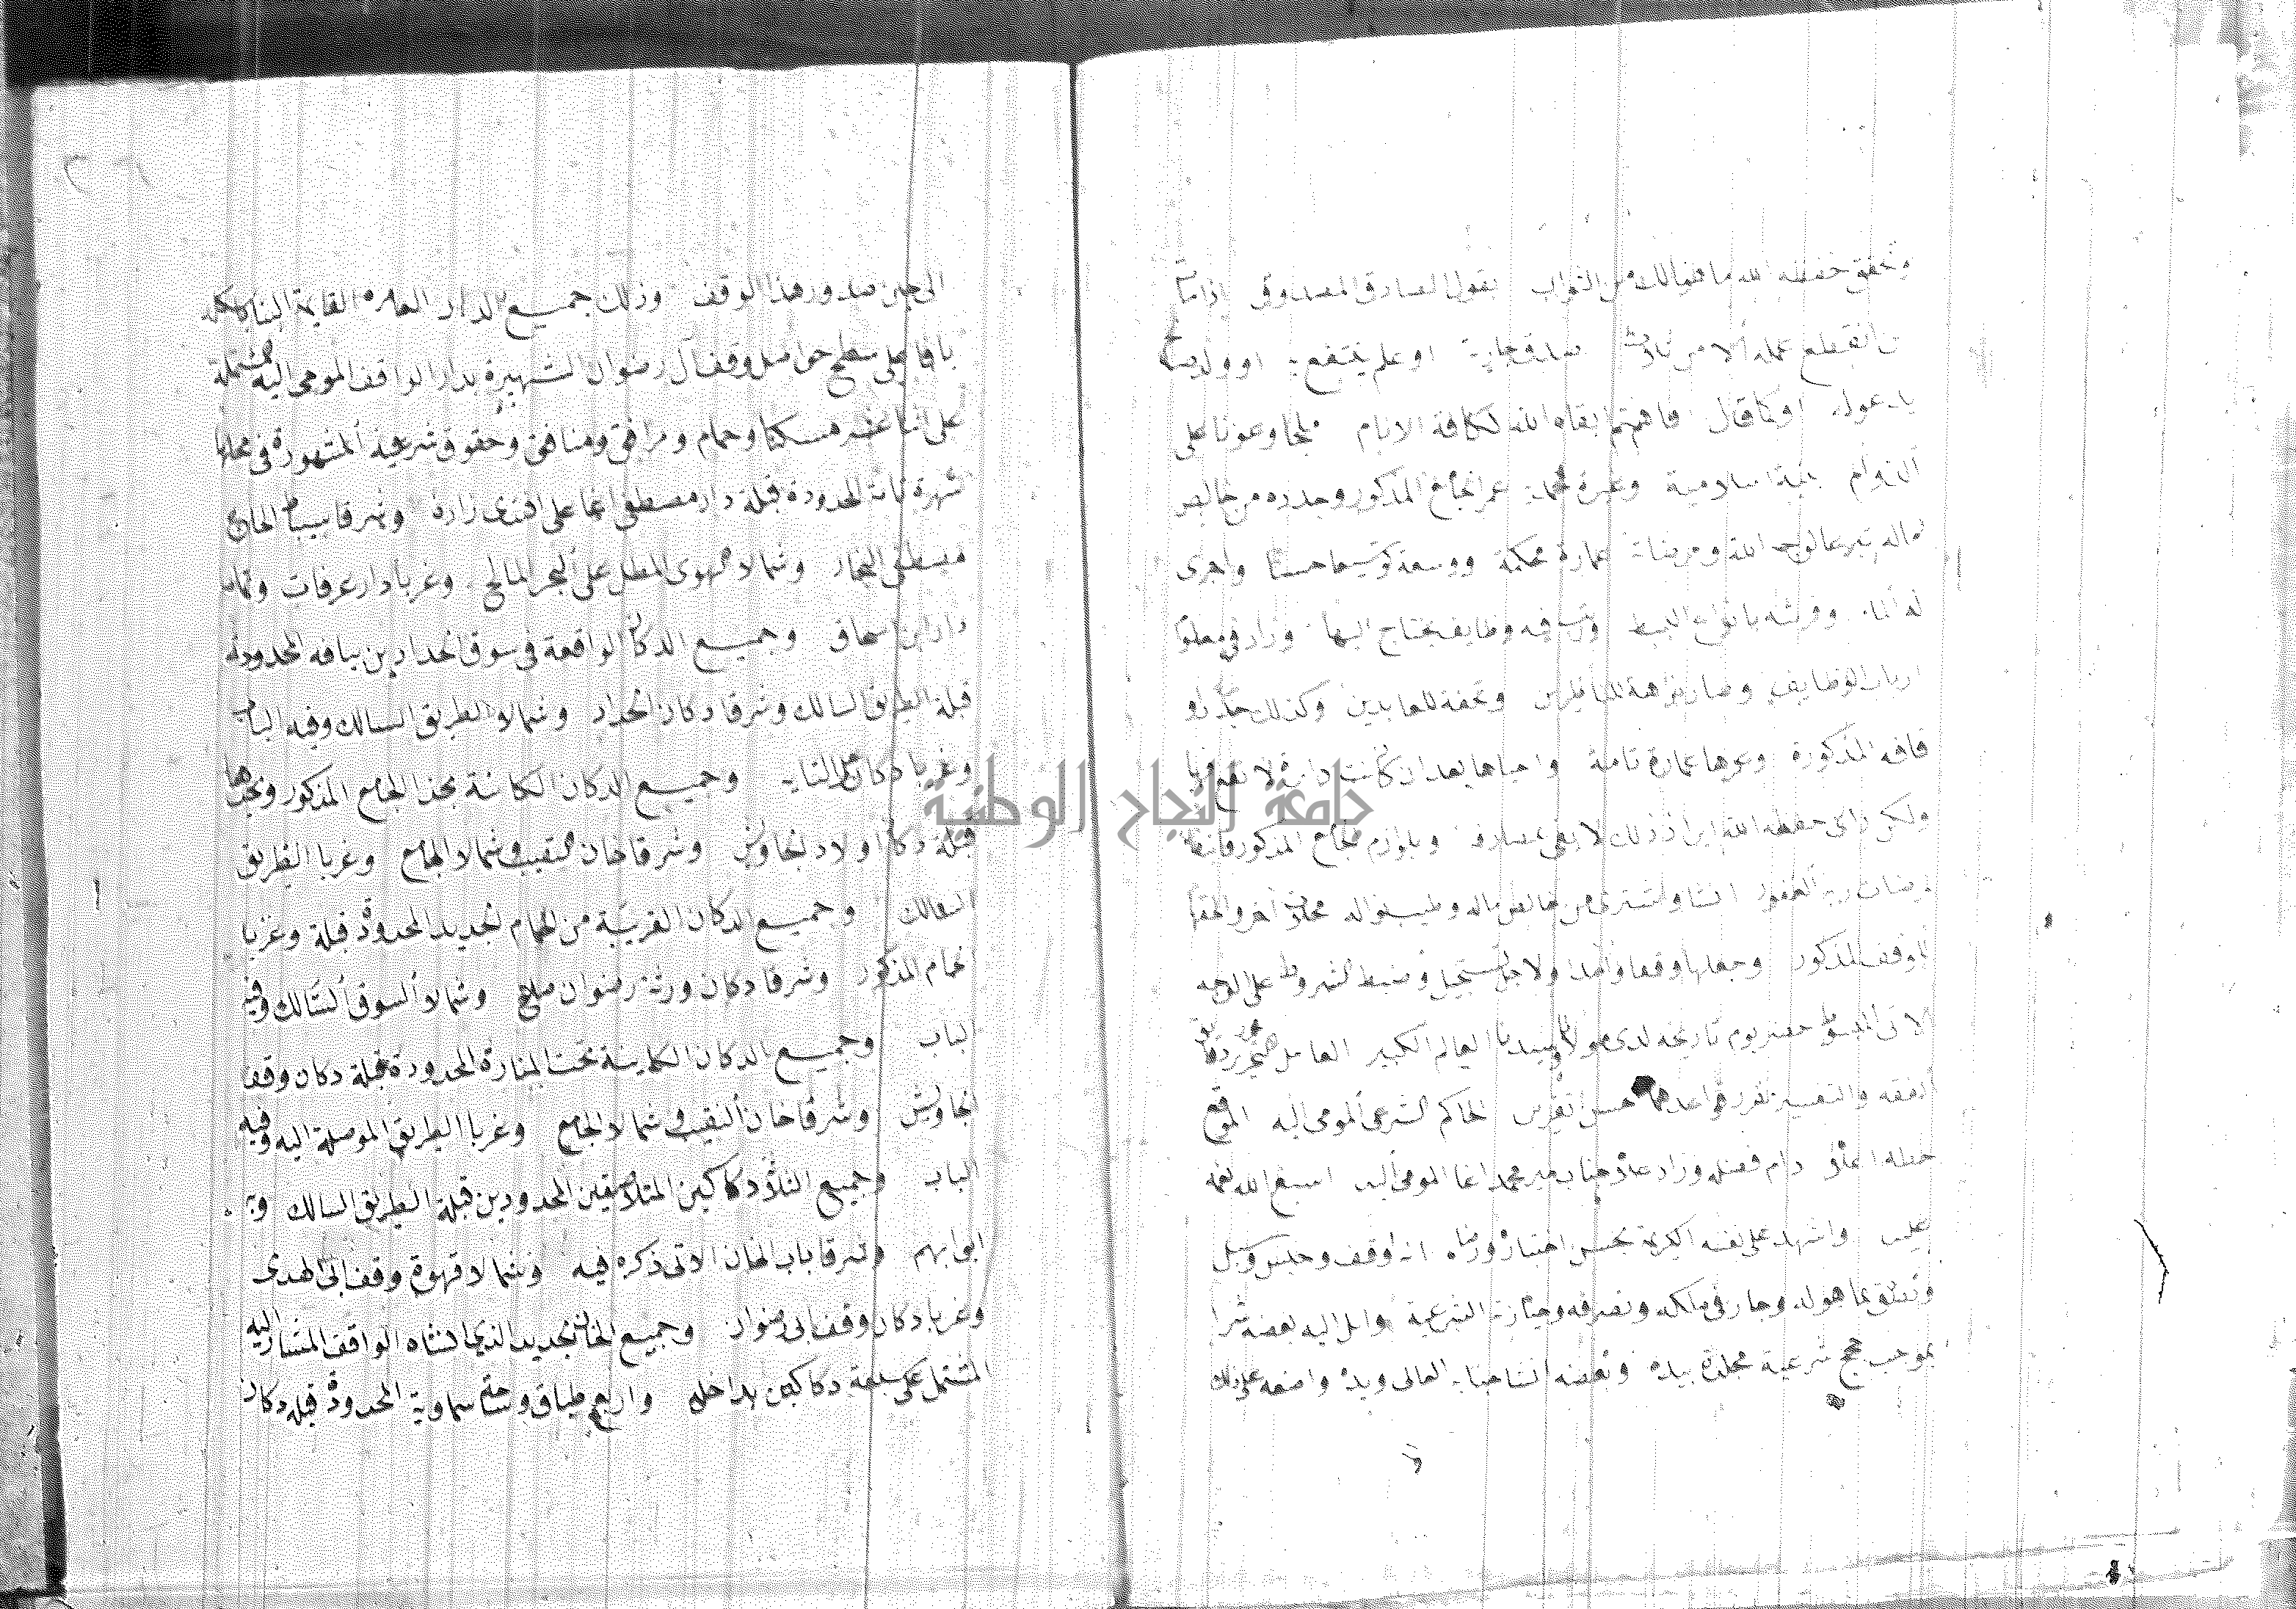 وتحقق حفظه الله ما هنالك من الثواب بقول الصادق المصدوق اذا مات
ابن انقطع عمله الا من ثلاث صدقة جارية او علم ينتفع به او ولد صالح
يدعو له او كما قال فاهتم ابقاه الله لكافة الانام ملجا وعونا على
الدوام بنية اسلامية وغيرة عمر الجامع المذكور وجدده من خالص
ماله تبرعا لوجه الله ومرضاته عمارة محكمة ووسعه توسيعا حسنا واجرى
له الماء وفرشه بانواع البسط ورتب فيه وظايف يحتاج اليها وزاد في معلوم
ارباب الوظايف وصار نزهة للناظرين وتحفة للعابدين وكذلك جدد
المذكورة وعمرها عمارة تامة واحياها بعد ان كانت داثرة لا نفع بها
ولكن راى حفظه الله ايراد ذلك لا يفي بمصارف ولوازم الجامع المذكور
لمرضات ربه الغفور انشا واشترى من خالص ماله وطيب نواله محلات اخر والحقها
بالوقف المذكور وجعلها وقفا واحدا ولاجل التسجيل وضبط الشروط على الوجه
الاتى المبسوط حضر يوم تاريخه لدى مولانا وسيدنا العالم الكبير العامل
الفقه والتفسير مقرر قواعدهما حسن تقرير الحاكم الشرعى المومى اليه الموقع
خطه اعلاه دام فضله وزاد علاه جناب مير محمد اغا المومى اليه اسبغ الله نعمه
عليه واشهد على نفسه الكريمة بحسن اختياره ورضاه انه اوقف وحبس وسبل
وتصدق بما هو له وجار في ملكه وتصرفه وحيازته الشرعية وال اليه بعضه شرا
بموجب حجج شرعية مخلدة بيده وبعضه انشا جنابه العالى ويده واضعه على ذلك
٢٦
الى حين صدور هذا الوقف وذلك جميع الدار العامره القايمة البنا الكاينه
بيافا على سطح حواصل وقف آل رضوان الشهيرة بدار الواقف المومى اليه المشتملة
على اثنا عشر مسكنا وحمام ومرافق ومنافع وحقوق شرعية المشهورة في محلها
شهرة تامة المحدودة قبلة دار مصطفى اغا على افندى زاده وشرقا سيباط الحاج
مصطفى النجار وشمالا مهوى المطل على البحر المالح وغربا دار عرفات وتمامه
دار ابن اسحاق وجميع الدكان الواقعة في سوق الحدادين بيافه المحدودة
قبلة الطريق السالك وشرقا دكان الحداد وشمالا الطريق السالك وفيه الباب
وغربا دكان وجميع الدكان الكاينة بحذ الجامع المذكور وتحدها
قبلة دكان اولاد الجاويش وشرقا خان النقيب وشمالا الجامع وغربا الطريق
السالك وجميع الدكان القريبة من الحمام الجديد المحدودة قبلة وغربا
الحمام المذكور وشرقا دكان ورثة رضوان وشمالا السوق السالك وفيه
الباب وجميع الدكان الكاينة تحت المنارة المحدودة قبلة دكان وقف
الجاويش وشرقا خان النقيب وشمالا الجامع وغربا الطريق الموصلة اليه وفيه
الباب وجميع الثلاث دكاكين المتلاصقين المحدودين قبلة الطريق السالك وبه
ابوابهم وشرقا باب الخان الاتى ذكره فيه وشمالا قهوة وقف ابى الهدى
وغربا دكان وقف ابى رضوان وجميع الخان الجديد الذي انشاه الواقف المشار اليه
المشتمل على سبعة دكاكين بداخله واربع طباق وساحة سماوية المحدودة قبلة دكان
جامعة النجاح الوطنية